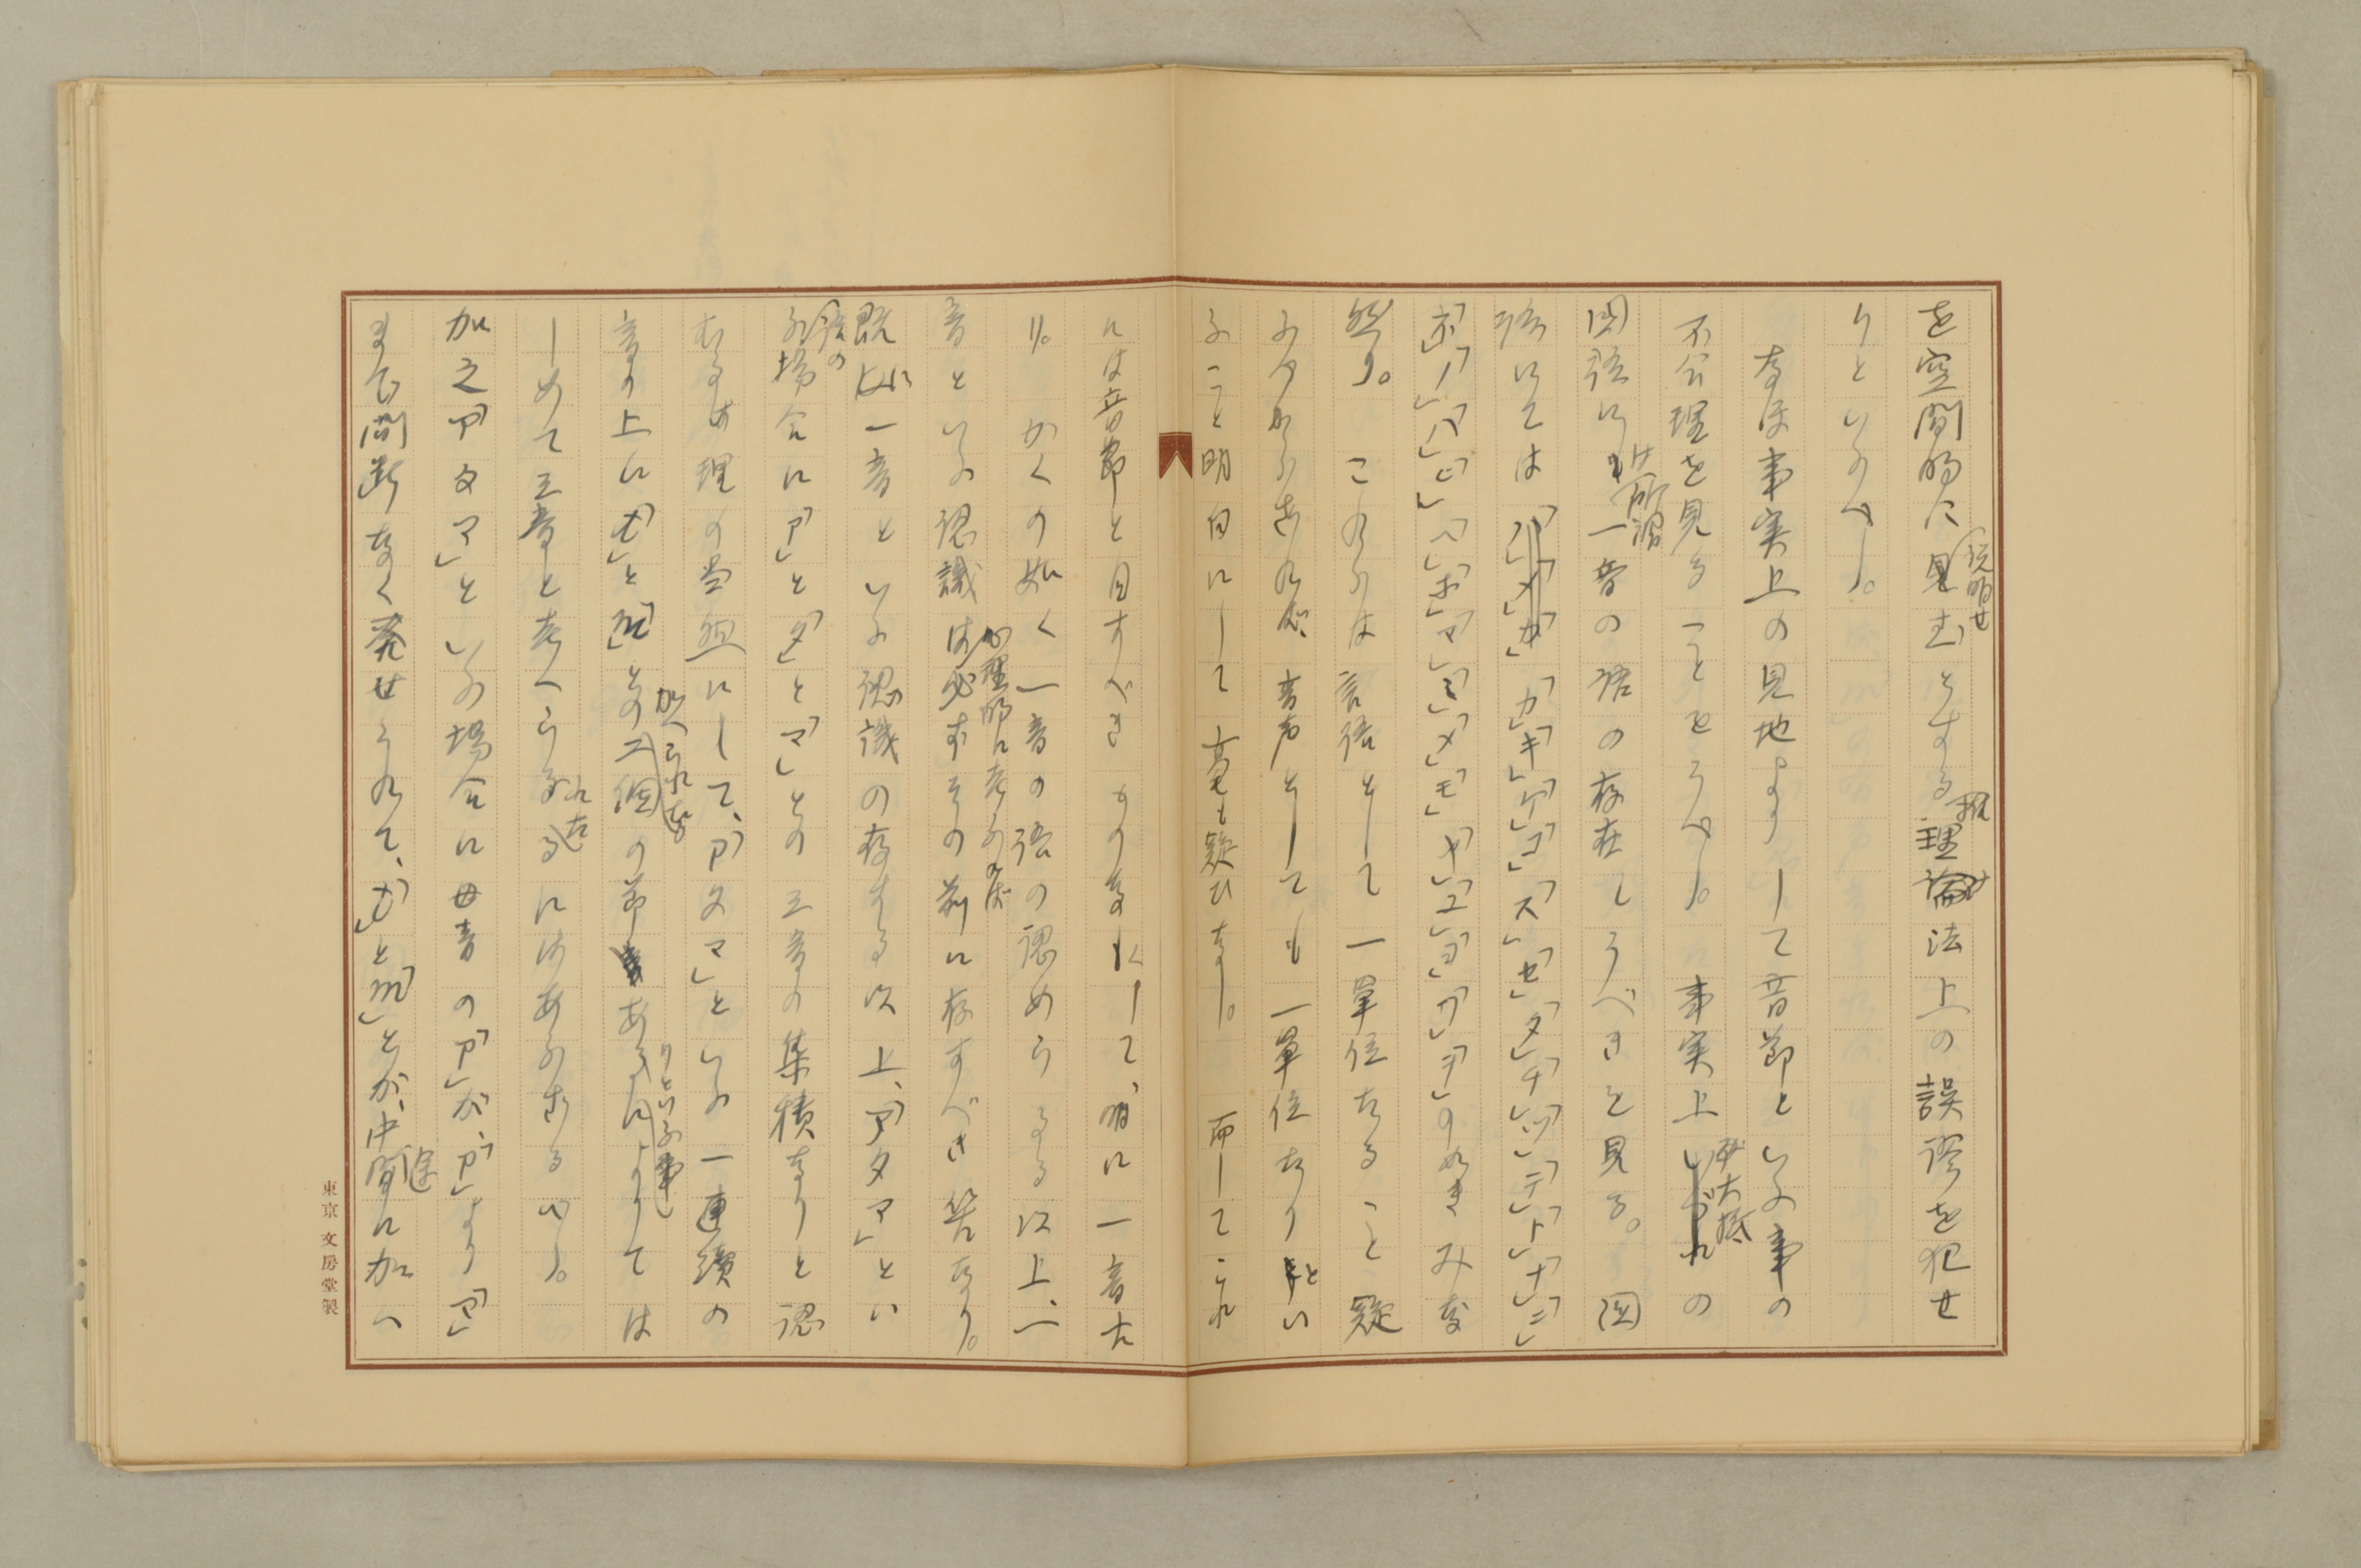 を空間的に説明せむとする推理法上の誤謬を犯せ
りといふべし。
なほ事実上の見地よりして音節といふ事の
不合理を見ることをうべし。事実上大抵の
国語には所謂一音の語の存在しうべきを見る。国
語にては「カ」「キ」「ケ」「コ」「ス」「セ」「タ」「チ」「ツ」「テ」「ト」「ナ」「ニ」
「ネ」「ノ」「ハ」「ヒ」「ヘ」「ホ」「マ」「ミ」「メ」「モ」「ヤ」「ユ」「ヨ」「ワ」「ヲ」の如きみな
然り。これらは言語として一単位たること疑
ふべからざれば、音声としても一単位たりとい
ふこと明白にして毫も疑ひなし。而してこれ
には音節と目すべきものなくして、明に一音た
り。かくの如く一音の語の認めらるる以上、一
音といふ認識は心理的に考ふれば必ずその前に存すべき筈なり。
既に一音といふ認識の存する以上、「アタマ」とい
ふ語の場合に「ア」と「タ」と「マ」との三音の集積なりと認
むるは理の当然にして、「アタマ」といふ一連続の
音の上に「t」と「m」との加へられたる節ありといふ事によりては
じめて三音と考へられたるにはあらざるべし。
加之「アタマ」といふ場合に母音の「ア」が、「ア」より「ア」
まで間断なく発せられて、「t」と「m」とが、中途に加へ
東京 文房堂製